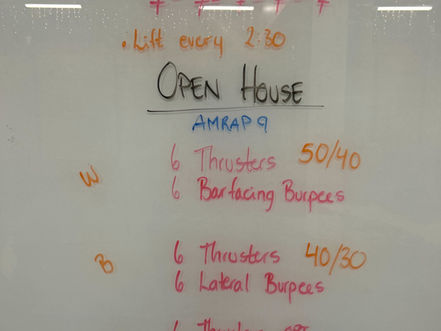 . Lift every 2:30
OPEN HOUSE
AMRAP 9
6 Thrusters 50/40
W
6 Barfacing Burpees
6 Thrusters 40/30
B
6 Lateral Burpees